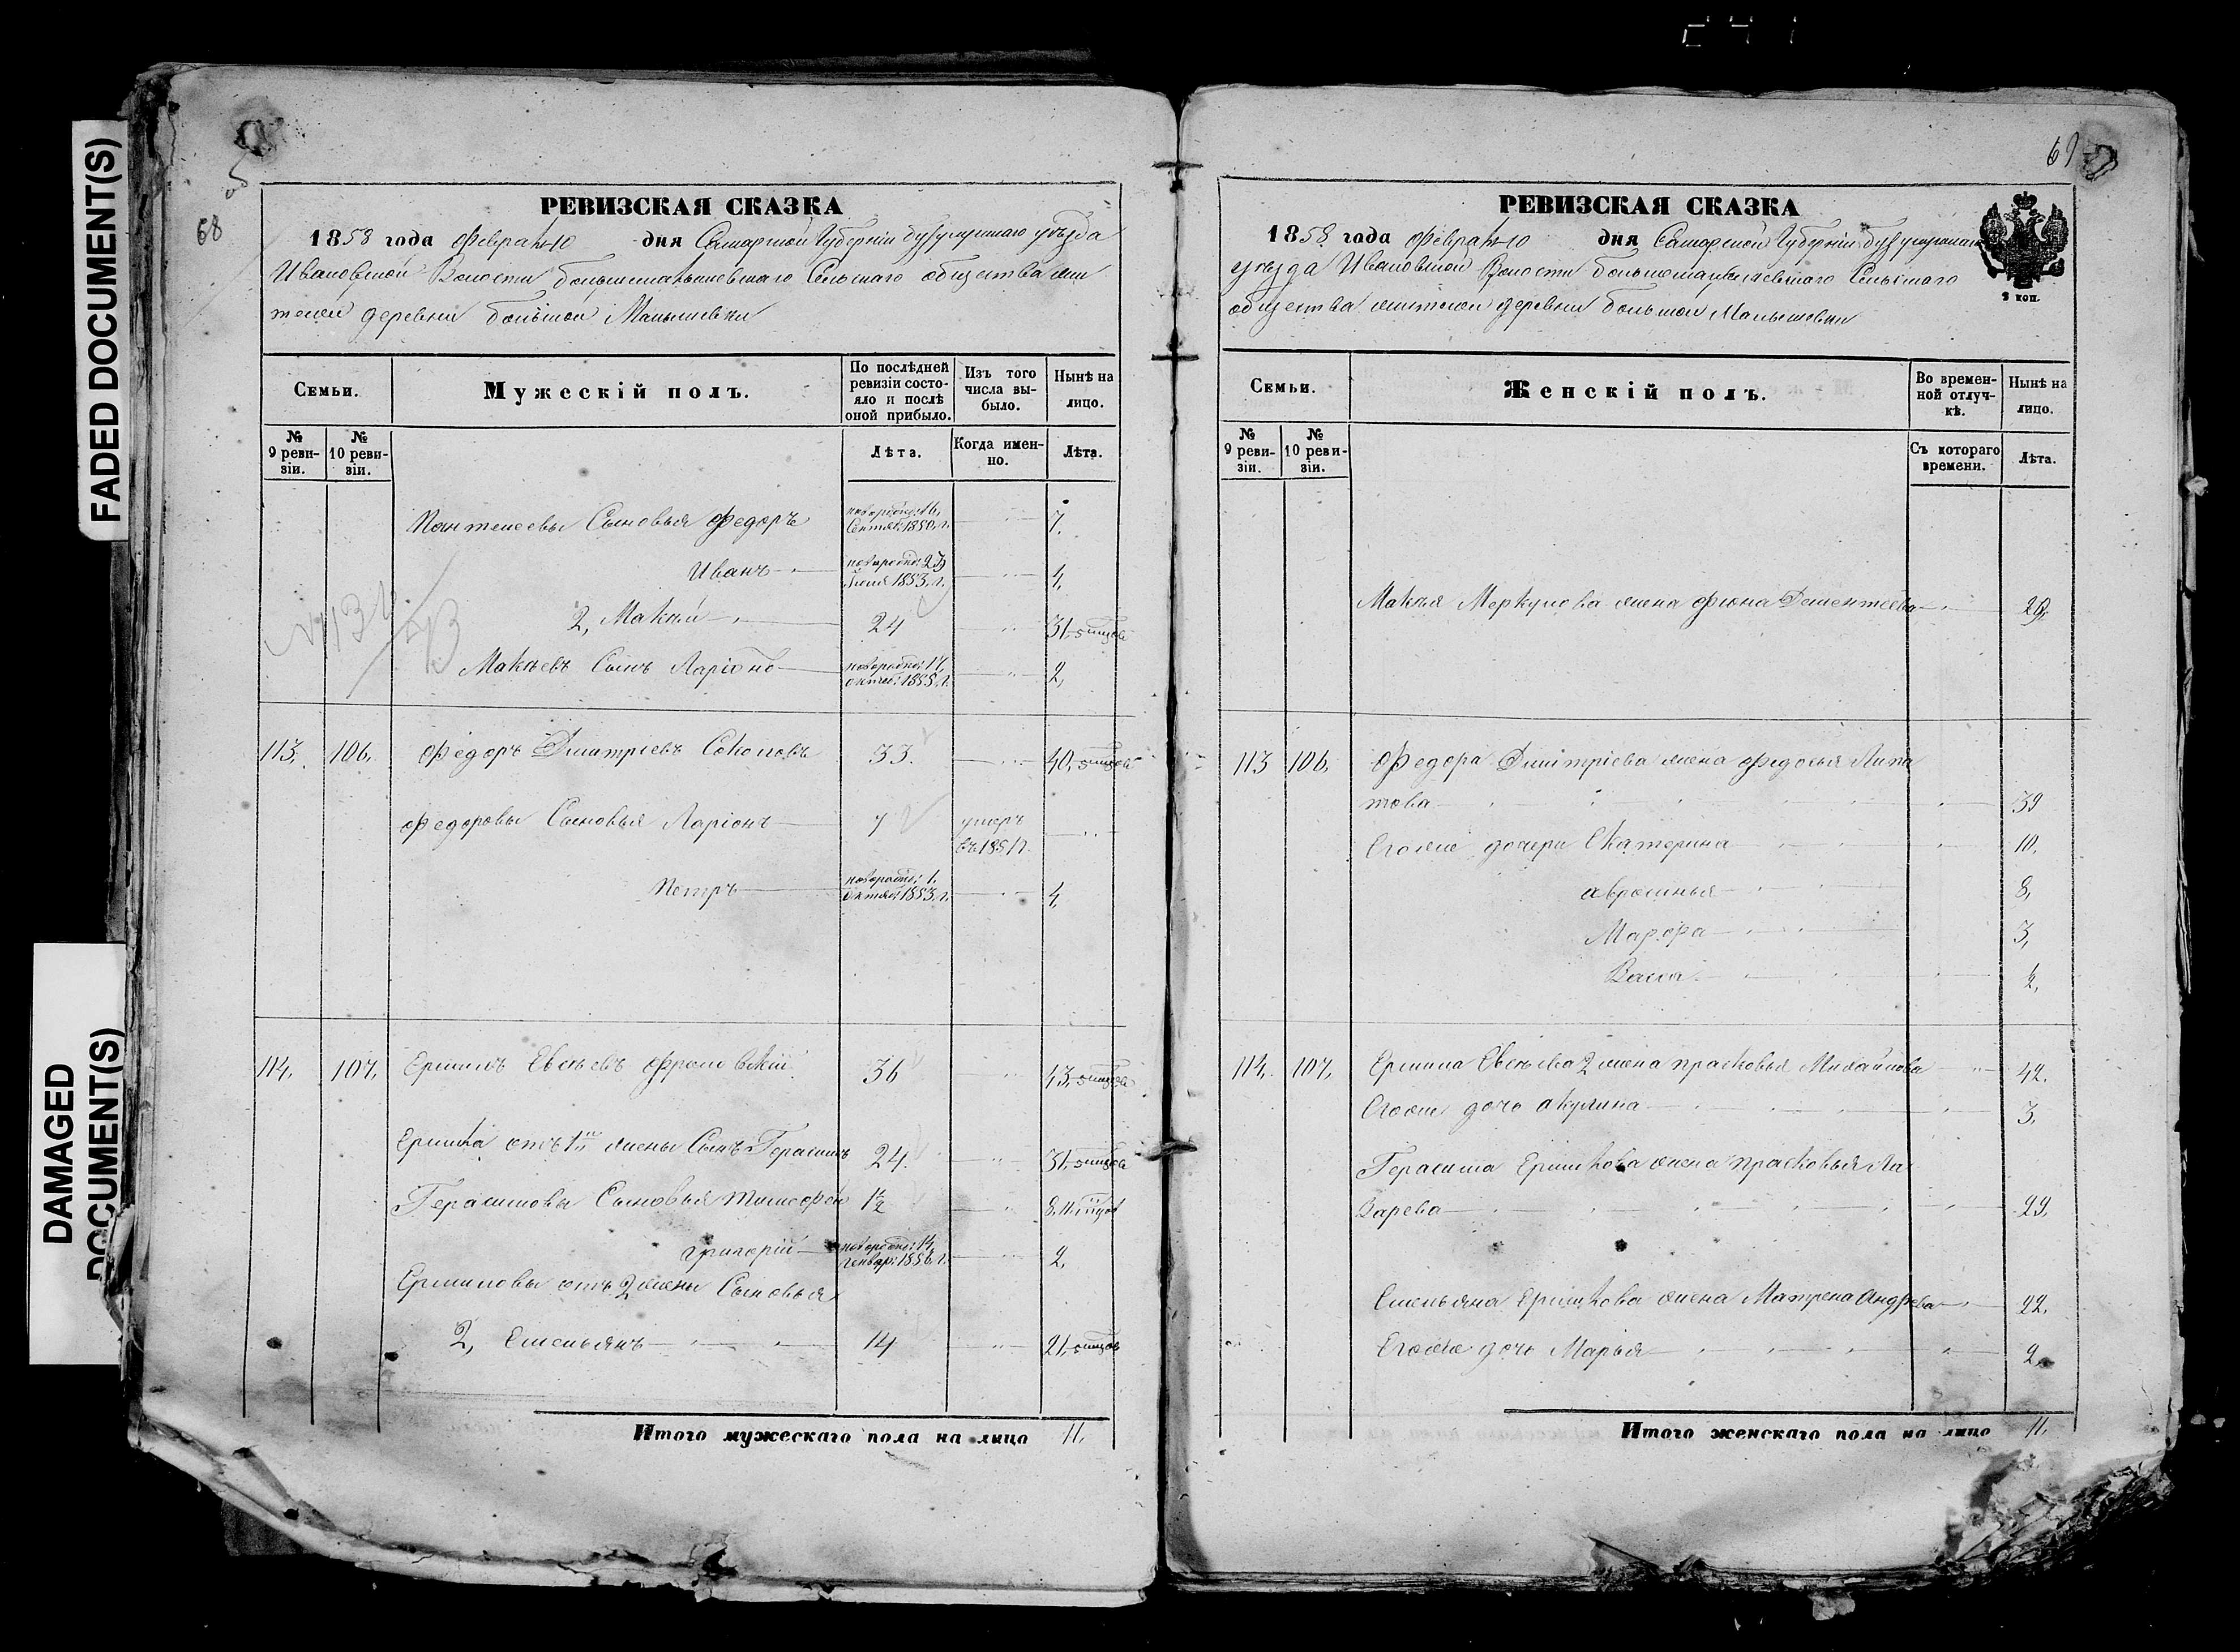 FADED DOCUMENT(S)
DAMAGED
DOCUMENT(S)
241
68
об
РЕВИЗСКАЯ СКАЗКА
1858 года Февраля 10 дня Самарской Губерніи Бузулукскаго уѣзда
Ивановской Волости большемалышевскаго Сельскаго общества жи
телей деревни большой Малышевки
Семьи.
Мужескій полъ.
По послѣдней ревизіи состояло и послѣ оной прибыло.
Изъ того числа выбыло.
Нынѣ на лицо.
№ 9 ревизіи.
№ 10 ревизіи.
Лѣта.
Когда именно.
Лѣта.
Пантелеевы Сыновья Федоръ новорожд: 16, Сентяб: 1850, г. 7.
Иванъ 1853, г. 4,
2, Макѣй 24 31,
Макѣевъ Сынъ Ларіонъ октяб: 1855, г. 2,
113, 106, Федоръ Дмитріевъ Соколовъ 33. 40,
Федоровы Сыновья Ларіонъ 7 умеръ въ 1851 г.
Петръ новорожд: 1, октяб: 1853, г. 4,
114, 107, Ермилъ Евсѣевъ 36 43,
Ермила отъ 1й жены Сынъ Герасимъ 24. 31,
Герасимовы Сыновья Тимофей 1/2 8,
Григорій новорожд: 14, Генвар: 1856, г. 2,
Ермиловы отъ 2 жены Сыновья
2, Емельянъ 14 21,
Итого мужескаго пола на лицо 11,
69
РЕВИЗСКАЯ СКАЗКА
1858 года Февраля 10 дня Самарской Губерніи Бузулукскаго
уѣзда Ивановской Волости большемалышевскаго Сельскаго
общества жителей деревни большой Малышевки
2 коп.
Семьи.
Женскій полъ.
Во временной отлучкѣ.
Нынѣ на лицо.
№ 9 ревизіи.
№ 10 ревизіи.
Съ котораго времени.
Лѣта.
Макѣя Меркулова жена Фіона Дементеева 29,
113 106, Федора Дмитріева жена Федосья Липа
това 39
Егоже дочери Екатерина 10,
авросинья 8,
Марфа 3,
Васса 2,
114, 107, Ермила Евсѣева 2 жена прасковья Михайлова 42.
Егоже дочь акулина 3,
Герасима Ермилова жена прасковья Ла
зарева 29,
Емельяна Ермилова жена Матрена Андреева 22,
Егоже дочь Марья 2,
Итого женскаго пола на лицо 11,